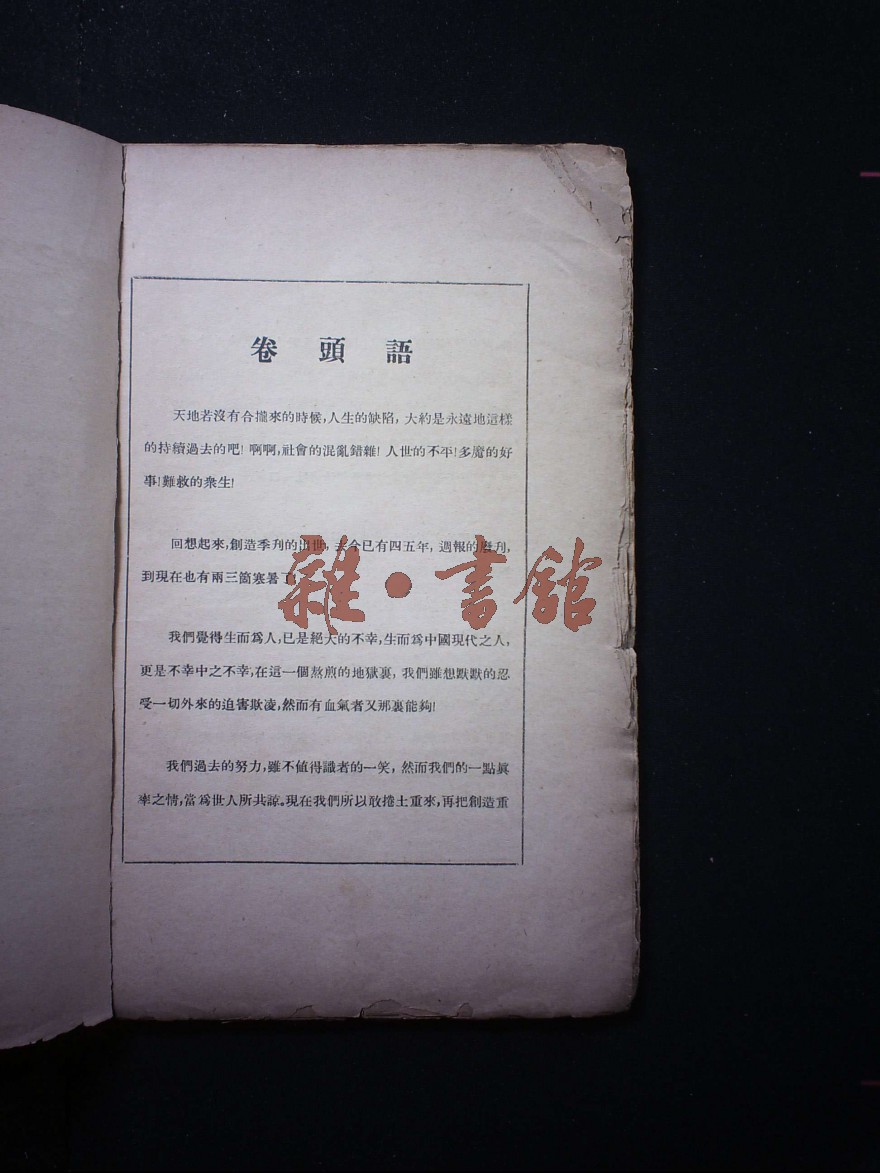 卷頭語
天地若沒有合攏來的時候,人生的缺陷,大約是永遠地這樣
的持續過去的吧!啊啊,社會的混亂錯雜!人世的不平!多魔的好
事!難救的衆生!
回想起來,創造季刋的出世,去今已有四五年,週報的
刋,
到現在也有兩三箇寒暑了
雜·書館
我們覺得生而爲人,已是絕大的不幸,生而爲中國現代之人,
更是不幸中之不幸,在這一個熬煎的地獄裏,我們雖想默默的忍
受一切外來的迫害欺凌,然而有血氣者又那裏能夠!
我們過去的努力,雖不値得識者的一笑,然而我們的一點眞
率之情,當爲世人所共諒。現在我們所以敢捲土重來,再把創造重